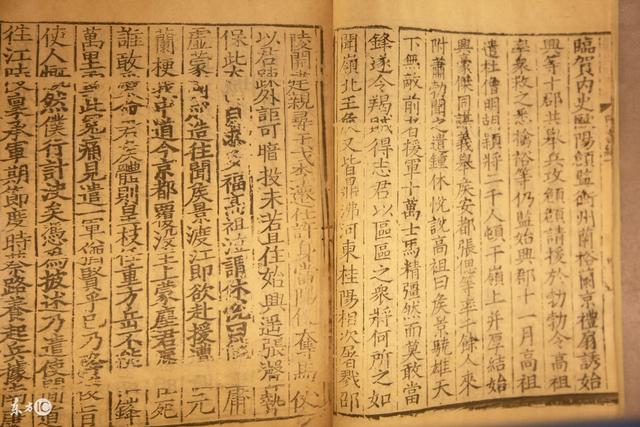 臨賀內史歐陽頠監衡州蘭裕蘭京禮扇誘始
興等十郡共舉兵攻頠頠請援於勃勃令高祖
率衆救之悉擒裕等仍監始興郡十一月高祖
遣杜僧明胡穎將二千人頓于嶺上并厚結始
興豪傑同謀義舉侯安都張偲等率千餘人來
附蕭勃聞之遣鍾休悅說高祖曰侯景驍雄天
下無敵前者援軍十萬士馬精彊然而莫敢當
鋒遂令羯賊得志君以區區之衆將何所之如
聞嶺北王侯又皆鼎沸河東桂陽相次屠戮邵
陵開建親尋干戈李遷仕許身當陽便奪馬仗
以君疎外詎可暗投未若且住始興遙張聲勢
保此太山自求多福高祖泣謂休悅曰庸
虛蒙國成造往聞侯景渡江即欲赴援遭元
蘭梗我中道今京都覆沒主上蒙塵君辱臣死
誰敢愛命君侯體則皇枝任重方岳不能鋒
萬里雪此冤痛見遣一軍猶賢乎已乃旨
使人慨然僕行計決矣憑爲披述乃遣使間道
往江陵稟承軍期節度時蔡路養起兵據南